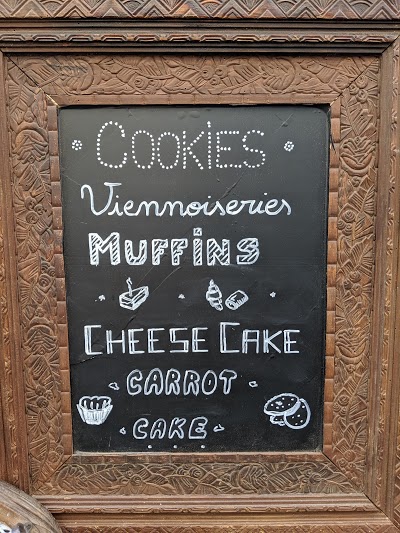 COOKiES
Viennoiseries
MUFFiNS
CHEESE CAKE
CARROT
CAKE